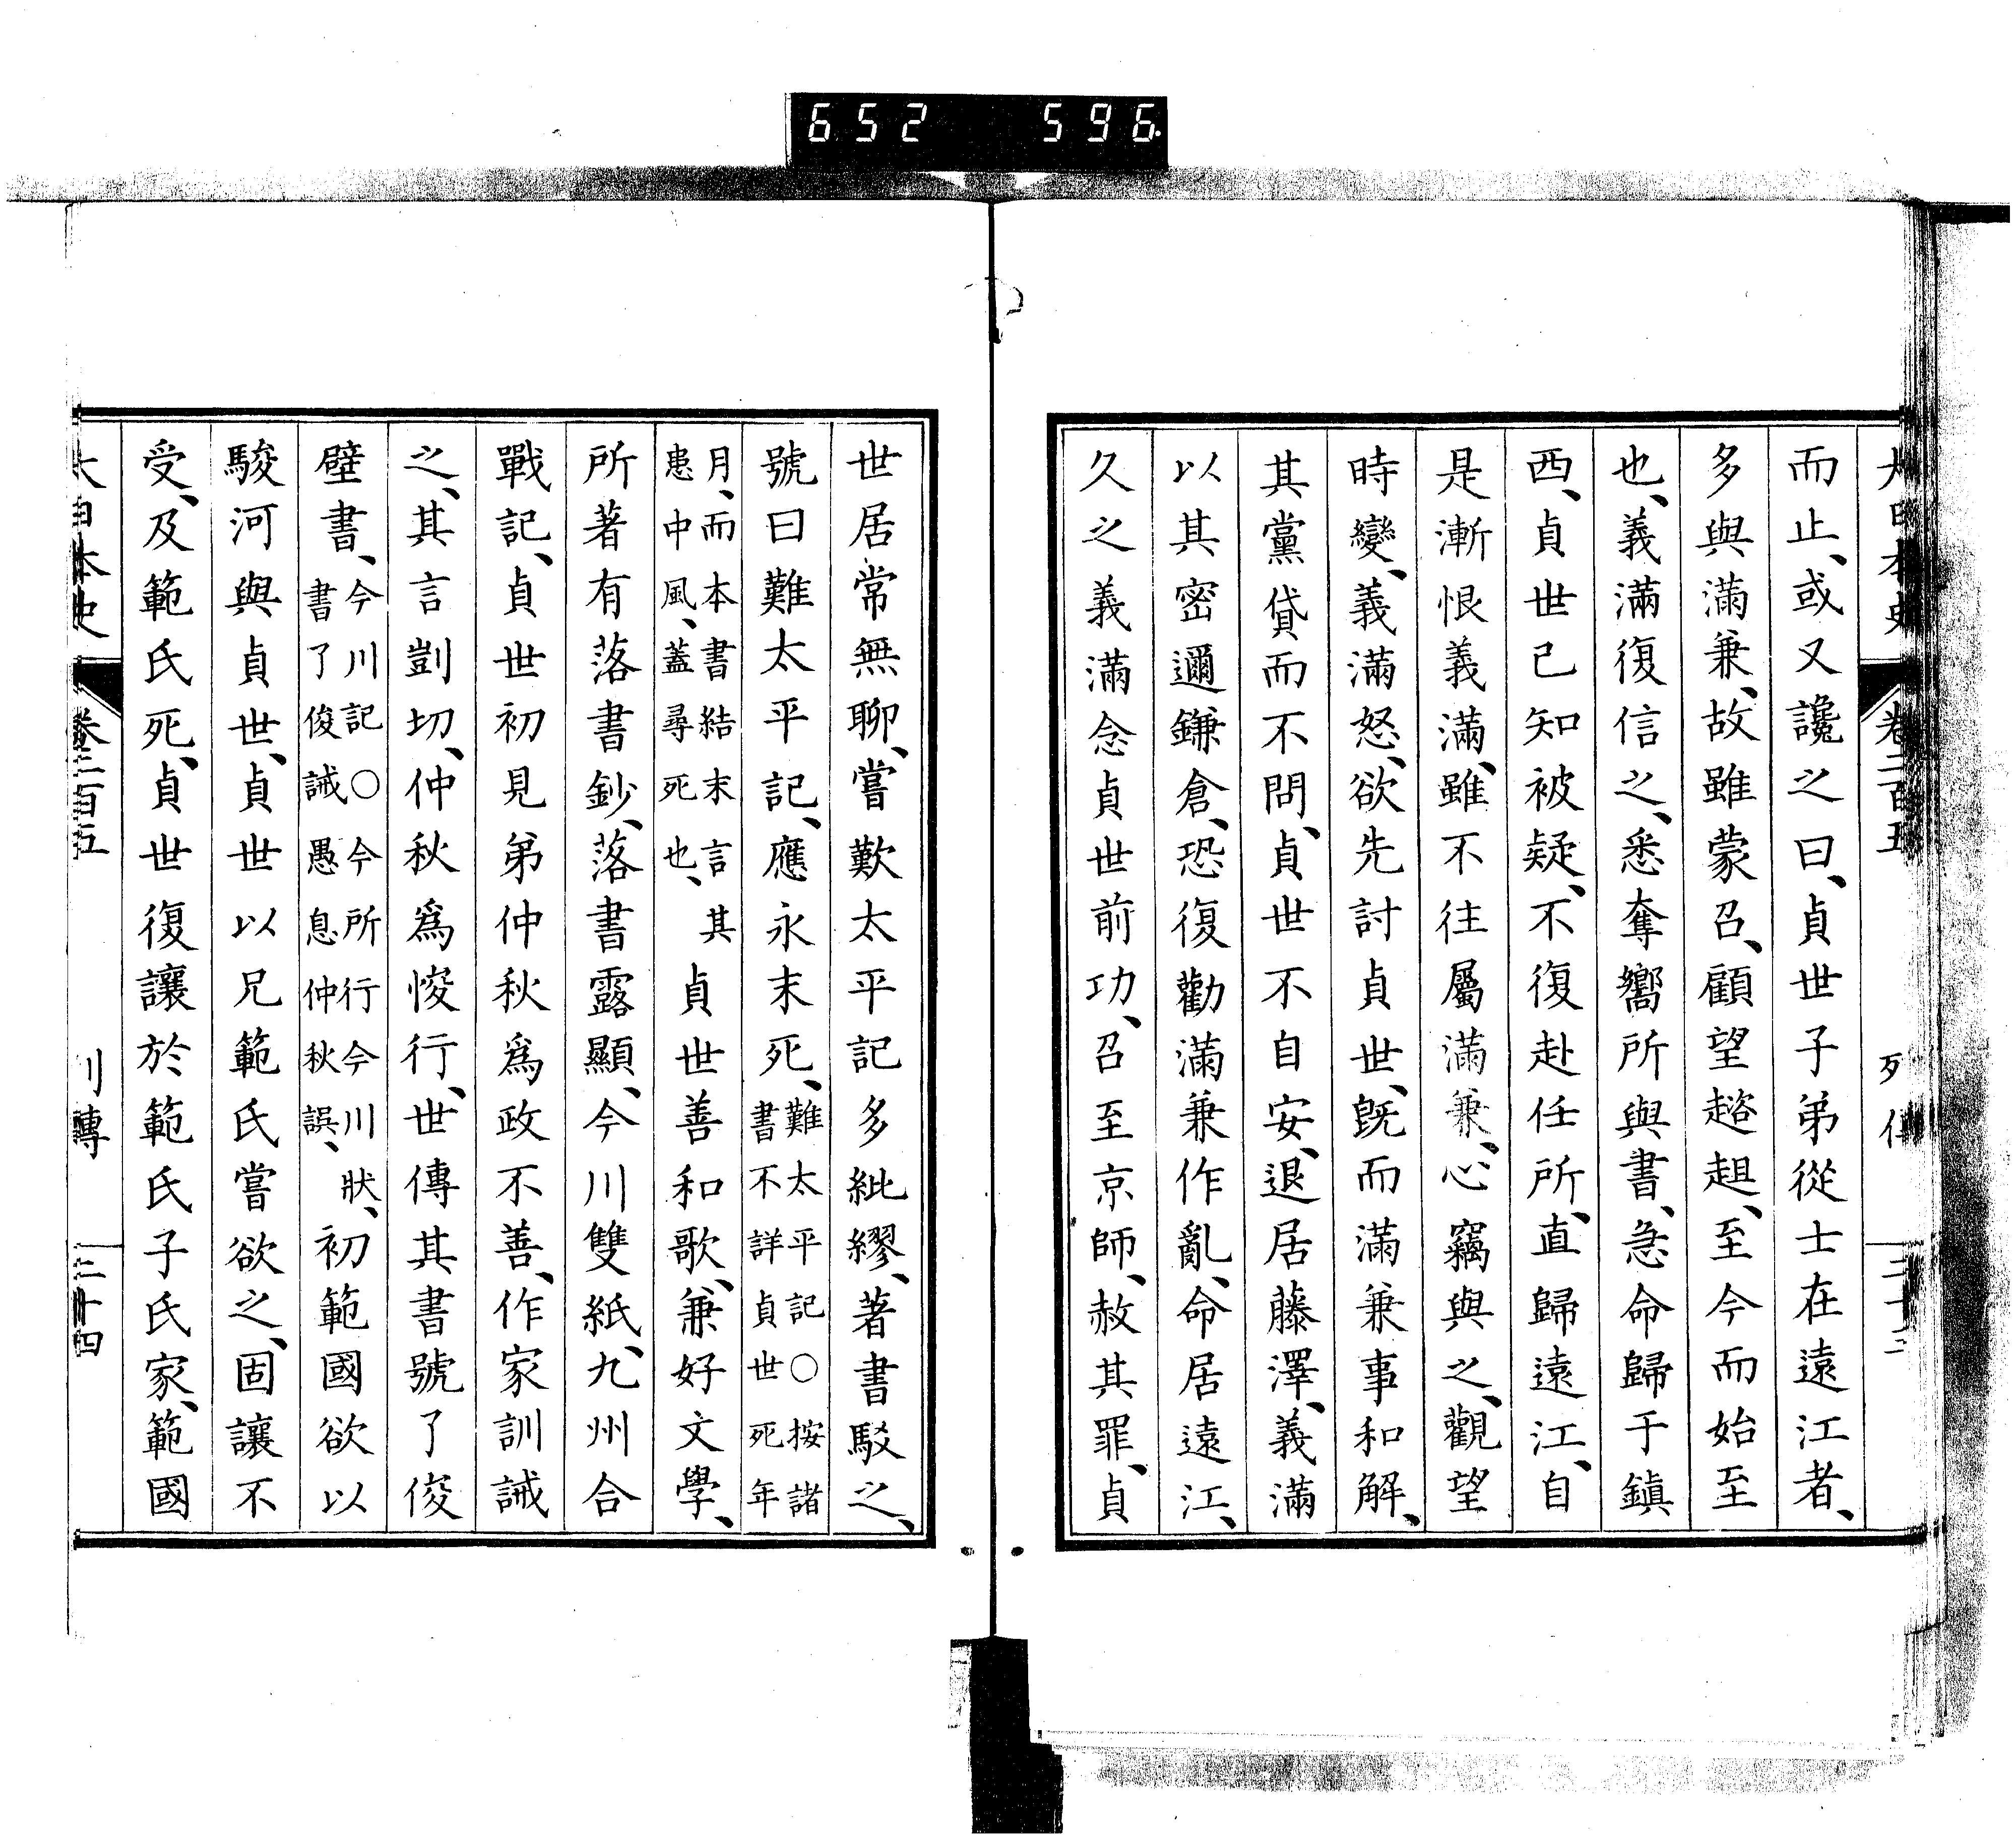 652 596
大日本史 卷二百五 列傳
而止、或又讒之曰、貞世子弟從士在遠江者、
多與滿兼、故雖蒙召、顧望趦趄、至今而始至
也、義滿復信之、悉奪嚮所與書、急命歸于鎭
西、貞世已知被疑、不復赴任所、直歸遠江、自
是漸恨義滿、雖不往屬滿兼、心竊與之、觀望
時變、義滿怒、欲先討貞世、旣而滿兼事和解、
其黨貸而不問、貞世不自安、退居藤澤、義滿
以其密邇鎌倉、恐復勸滿兼作亂、命居遠江、
久之義滿念貞世前功、召至京師、赦其罪、貞
世居常無聊、嘗歎太平記多紕繆、著書駁之、
號曰難太平記、應永末死、難太平記○按諸書不詳貞世死年
月、而本書結末言其患中風、蓋尋死也、貞世善和歌、兼好文學、
所著有落書鈔、落書露顯、今川雙紙、九州合
戰記、貞世初見弟仲秋爲政不善、作家訓誡
之、其言剴切、仲秋爲悛行、世傳其書號了俊
壁書、今川記○今所行今川狀、書了俊誡愚息仲秋誤、初範國欲以
駿河與貞世、貞世以兄範氏嘗欲之、固讓不
受、及範氏死、貞世復讓於範氏子氏家、範國
大日本史 卷二百五 列傳 三十四